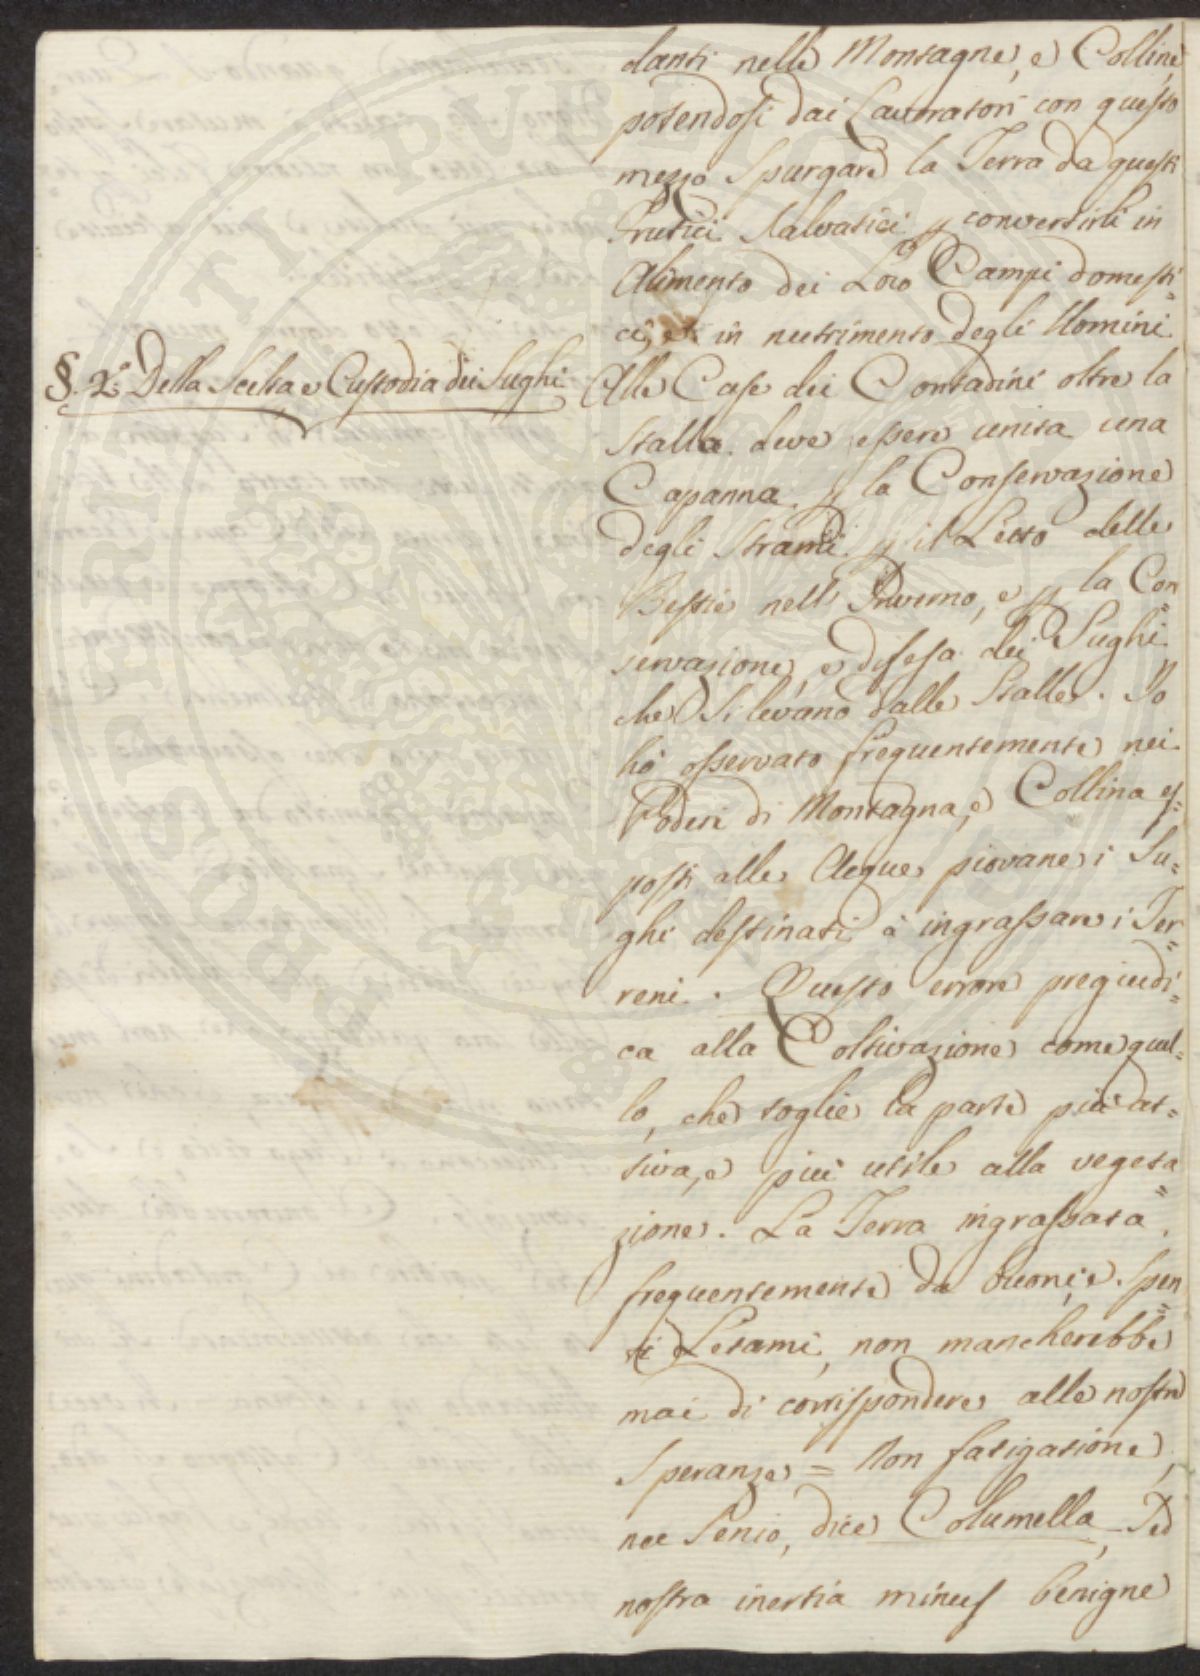 danti nelle Montagne, e Colline,
potendosi dai Lavoratori con questo
mezzo Spurgare la Terra da questi
frutici Salvatici p convertirli in
Alimento dei Loro Campi domesti=
ci, e in nutrimento degli Uomini.
§. 2.° Della Scelta e Custodia dei Sughi
Alle Case dei Contadini oltre la
Stalla deve essere unita una
Capanna p la Conservazione
degli Strami p il Letto delle
Bestie nell' Inverno, e p la Con=
servazione, e difesa dei Sughi
che Si levano dalle Stalle. Io
hò osservato frequentemente nei
Poderi di Montagna, e Collina es=
posti alle Acque piovane i Su=
ghi destinati à ingrassare i Ter=
reni. Questo errore pregiudi=
ca alla Coltivazione come quel=
lo, che toglie la parte più at=
tiva, e più utile alla vegeta=
zione. La Terra ingrassata
frequentemente da buoni, e Spen=
ti Letami, non mancherebbe
mai di corrispondere alle nostre
Speranze = Non fatigatione,
nec Senio, dice Columella, Sed
nostra inertia minus benigne
PROSPERITATI PUBLICAE